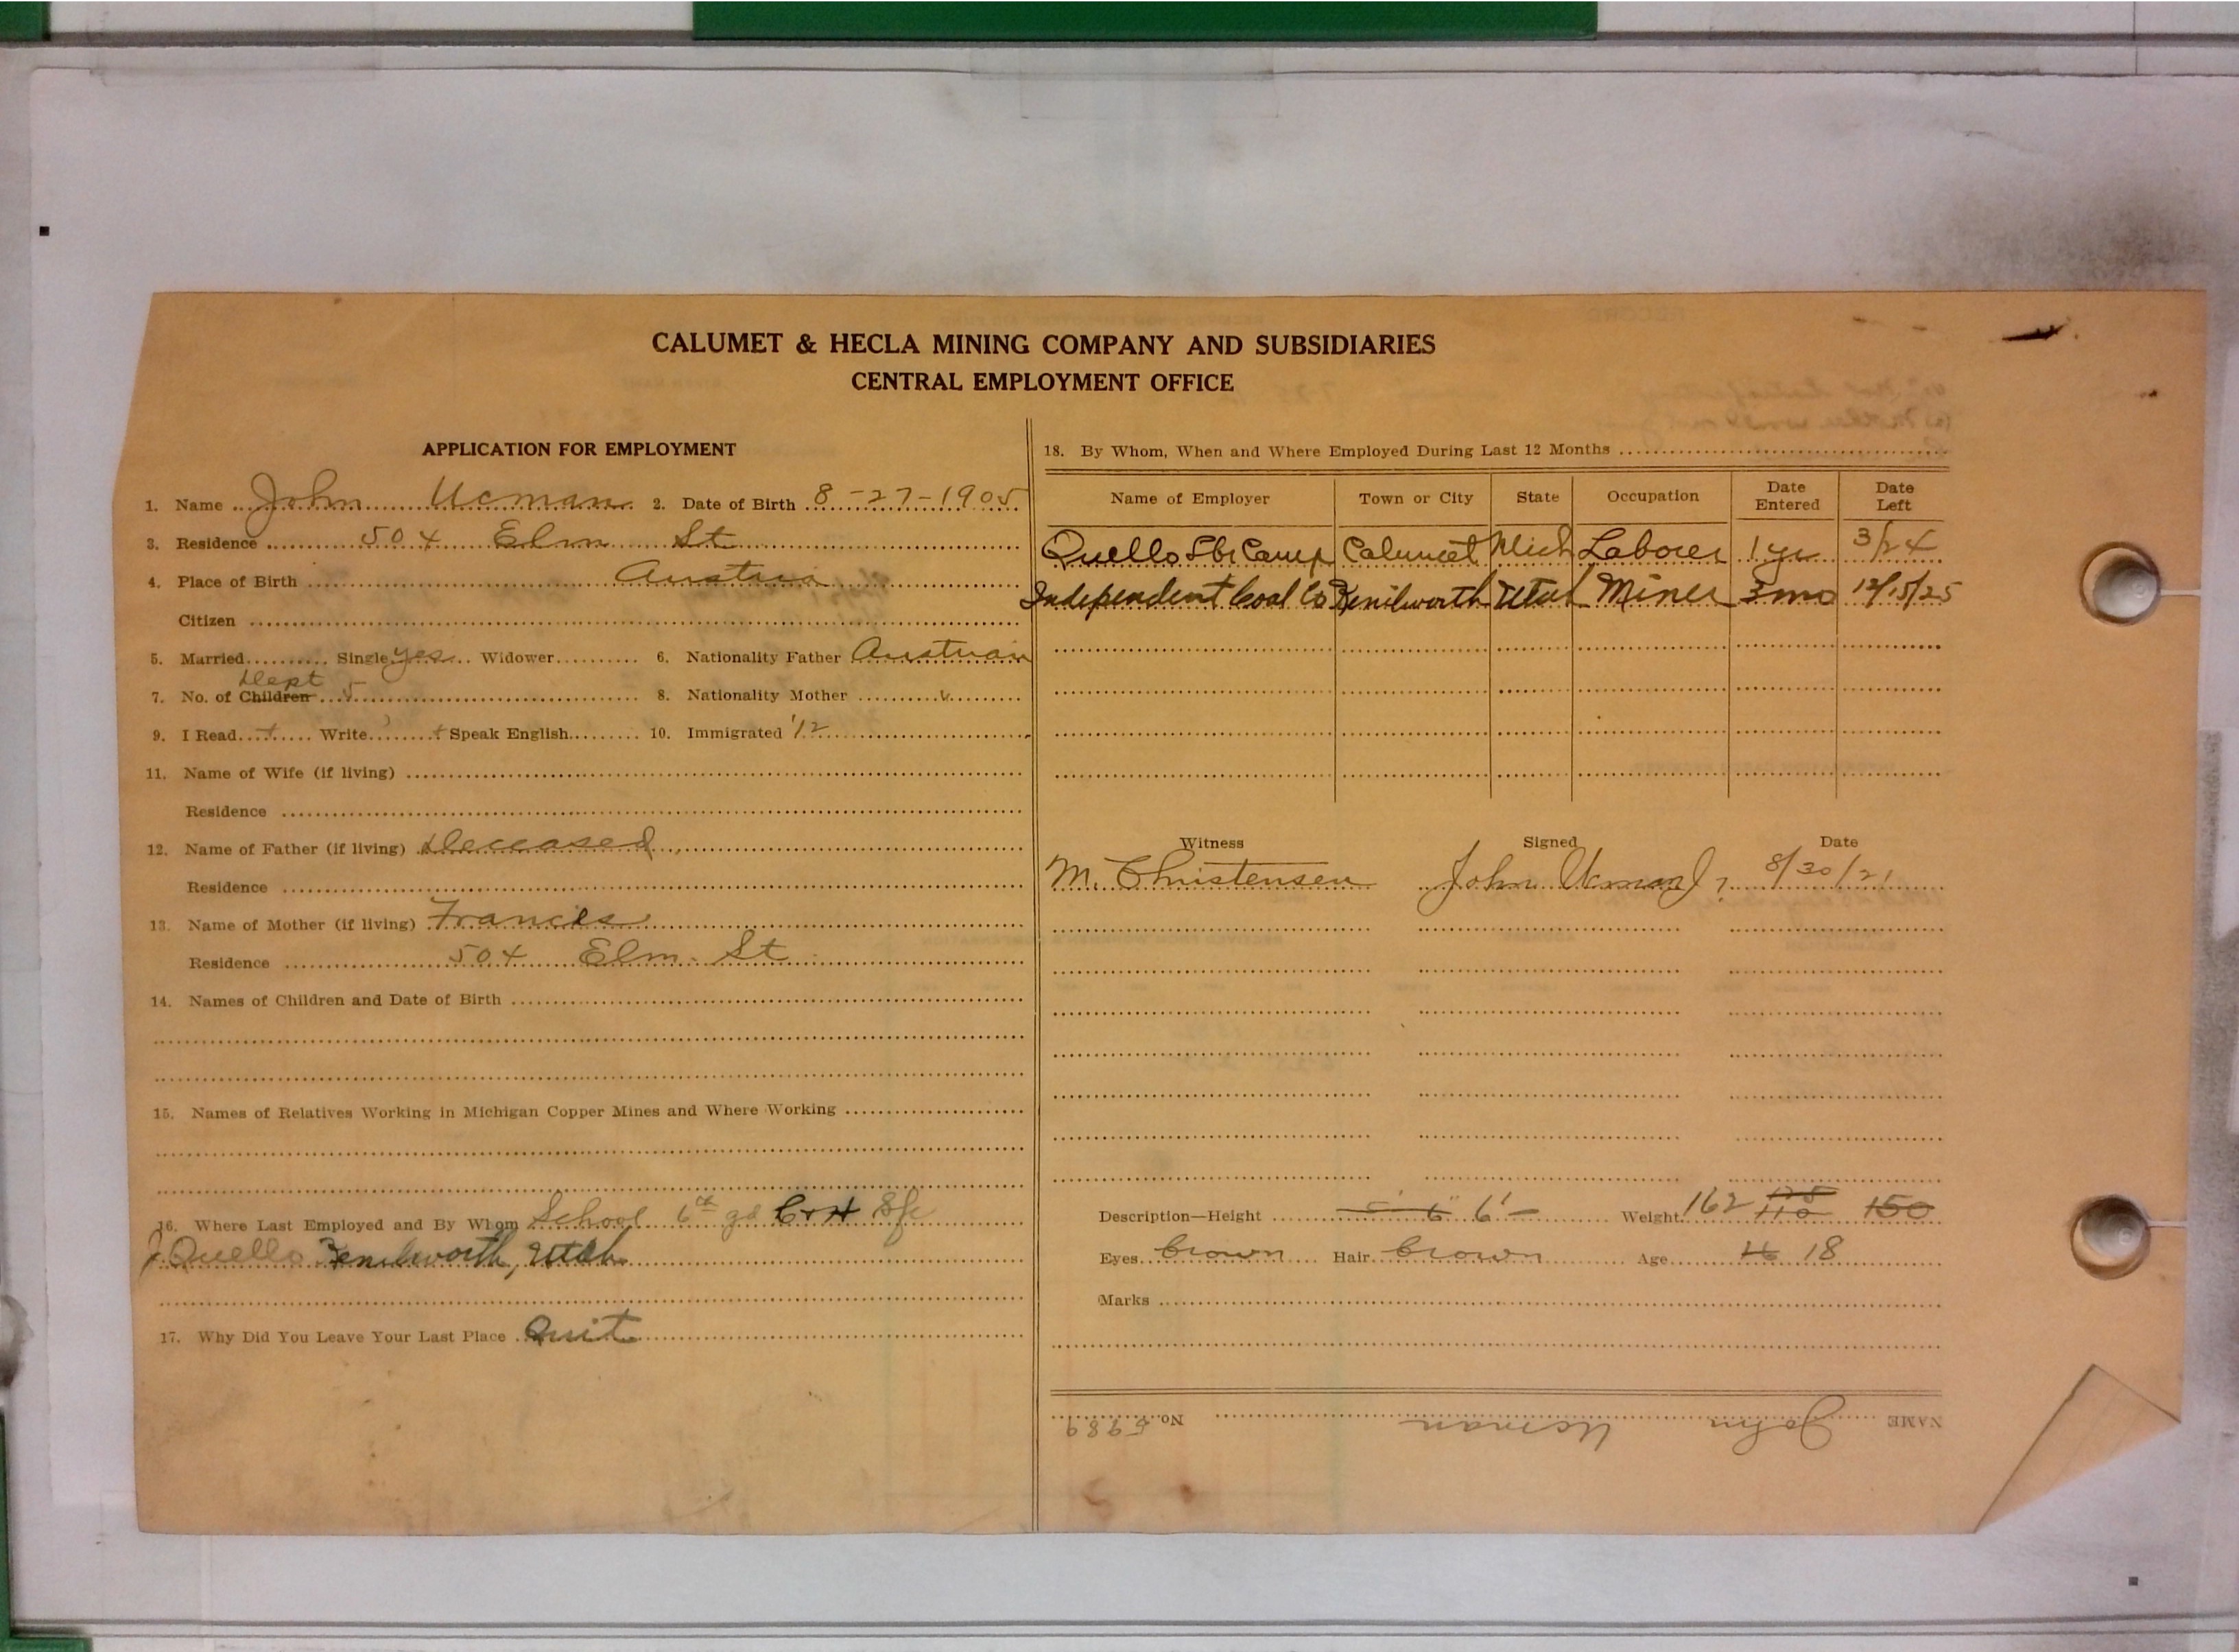 CALUMET & HECLA MINING COMPANY AND SUBSIDIARIES
CENTRAL EMPLOYMENT OFFICE
APPLICATION FOR EMPLOYMENT
1. Name John Ucman 2. Date of Birth 8-27-1905
3. Residence 504 Elm St
4. Place of Birth Austria
Citizen
5. Married Single yes Widower 6. Nationality Father Austrian
Dept
7. No. of Children 5 8. Nationality Mother "
9. I Read + Write + Speak English 10. Immigrated '12
11. Name of Wife (if living)
Residence
12. Name of Father (if living) Deceased
Residence
13. Name of Mother (if living) Frances
Residence 504 Elm St
14. Names of Children and Date of Birth
15. Names of Relatives Working in Michigan Copper Mines and Where Working
16. Where Last Employed and By Whom School 6th gd C+H
J. Quello Kenilworth, Utah
17. Why Did You Leave Your Last Place Quit
18. By Whom, When and Where Employed During Last 12 Months
Name of Employer Town or City State Occupation Date Entered Date Left
Quello Lbr Camp Calumet Mich Laborer 1 yr 3/24
Independent Coal Co Kenilworth Utah Miner 3 mo 12/15/25
Witness Signed Date
M. Christensen John Ucman Jr 8/30/21
Description—Height 5' 6" 6'— Weight 162 125 110 150
Eyes brown Hair brown Age 16 18
Marks
NAME John Ucman No. 5989